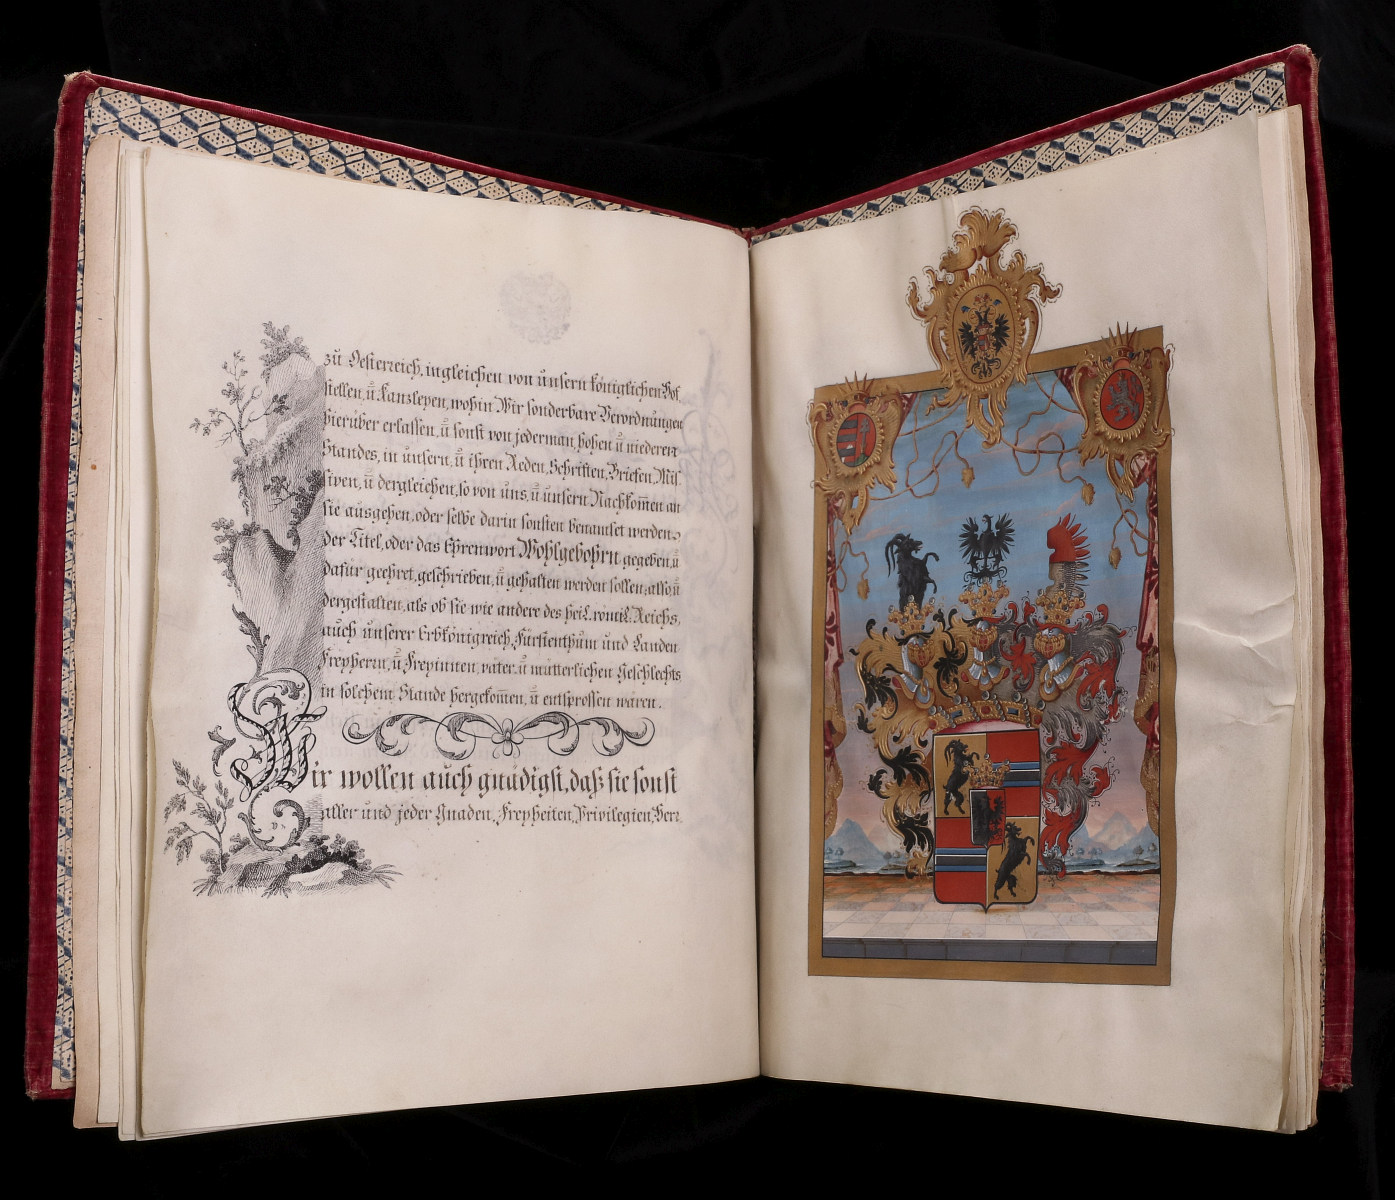 zů Oesterreich, ingleichen von ůnsern königlichen Hof
stellen, ů Kanzleyen, wohin Wir sonderbare Verordnůngen
hierůber erlassen, ů sonst von jederman, hohen ů niederen
Standes, in ůnsern, ů ihren Reden, Schriften, Briefen, Mis
siven, ů dergleichen, so von ůns, ů ůnsern Nachkom̄en an
sie aůsgehen, oder selbe darin sonsten benamset werden,
der Titel, oder das Ehrenwort Wohlgebohrn gegeben, ů
dafůr geehret, geschrieben, ů gehalten werden sollen, also, ů
dergestalten, als ob sie wie andere des heil. römis. Reichs,
aůch ůnserer Erbkönigreich, Fůrstenthům ůnd Landen
Freyherrn, ů Freyinnen, väter- ů můtterlichen Geschlechts
in solchem Stande hergekom̄en, ů entsprossen wären.
Wir wollen aůch gnädigst, daß sie sonst
aller ůnd jeder Gnaden, Freyheiten, Privilegien, Vor